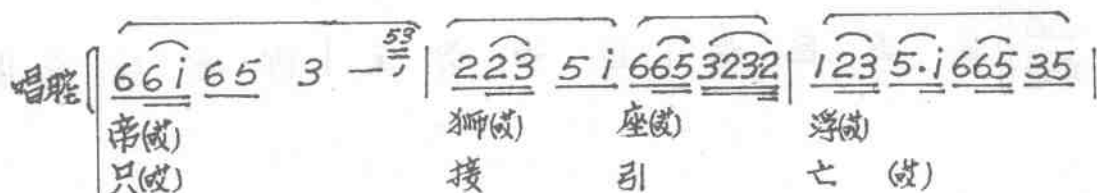 53
唱腔 6 6 i 6 5 3 — | 2 2 3 5 i 6 6 5 3 2 3 2 | 1 2 3 5 · i 6 6 5 3 5 |
帝(哎) 狮(哎) 座(哎) 浮(哎)
只(哎) 接 引 亡 (哎)